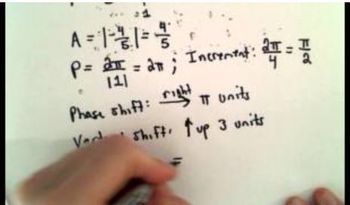 A = |-4/5| = 4/5
P = 2π/|1| = 2π ; Increment: 2π/4 = π/2
Phase shift: right → π units
shift: ↑ up 3 units
=